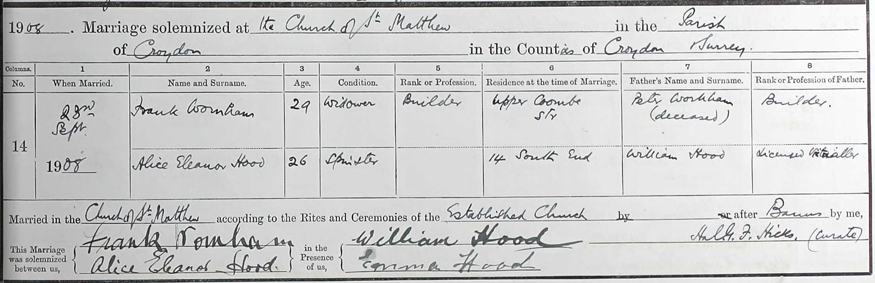 1908. Marriage solemnized at the Church of St. Matthew in the Parish
of Croydon in the Counties of Croydon Surrey.
Columns. 1 2 3 4 5 6 7 8
No. When Married. Name and Surname. Age. Condition. Rank or Profession. Residence at the time of Marriage. Father's Name and Surname. Rank or Profession of Father.
23rd Frank Wornham 29 Widower Builder Upper Coombe Peter Wornham Builder.
Sept. Str (deceased)
14
1908 Alice Eleanor Hood 26 Spinster 14 South End William Hood Licensed Victualler
Married in the Church of St. Matthew according to the Rites and Ceremonies of the Established Church by or after Banns by me,
This Marriage was solemnized between us, Frank Wornham in the Presence of us, William Hood F. Hicks, (Curate)
Alice Eleanor Hood. Emma Hood